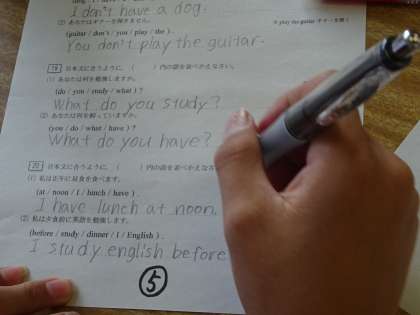 I don't have a dog.
(2) あなたはギターを弾きません。
play the guitar ギターを弾く
(guitar / don't / you / play / the ).
You don't play the guitar.
19 日本文に合うように，( )内の語を並べかえなさい。
(1) あなたは何を勉強しますか。
(do / you / study / what ) ?
What do you study?
(2) あなたは何を飼っていますか。
(you / do / what / have ) ?
What do you have?
20 日本文に合うように，( )内の語を並べかえなさい
(1) 私は正午に昼食を食べます。
(at / noon / I / lunch / have ).
I have lunch at noon.
(2) 私は夕食前に英語を勉強します。
(before / study / dinner / I / English ).
I study english before
5